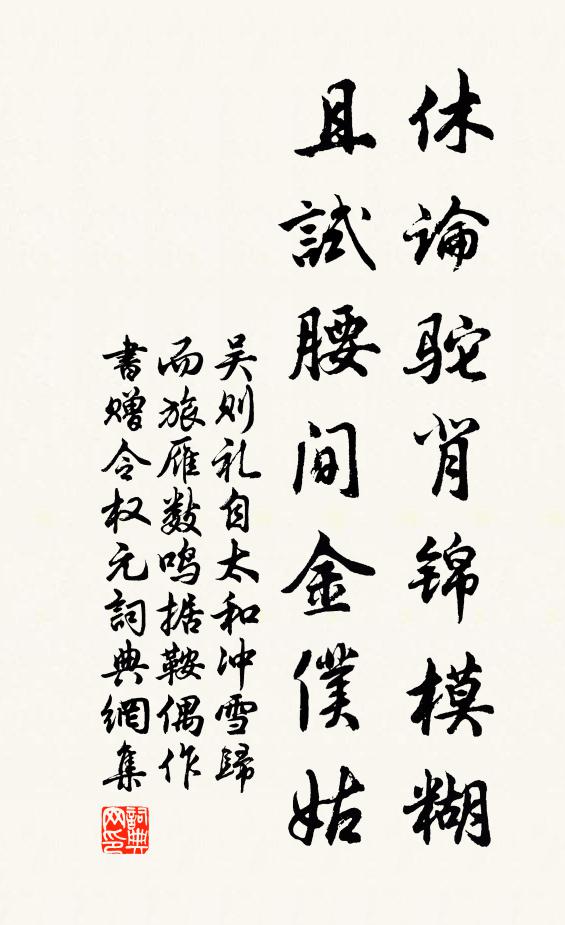 休论驼背锦模糊
且試腰间金僕姑
吴则礼自太和冲雪歸
而旅雁数鸣据鞍偶作
書赠令权元詞典網集
詞典
网印